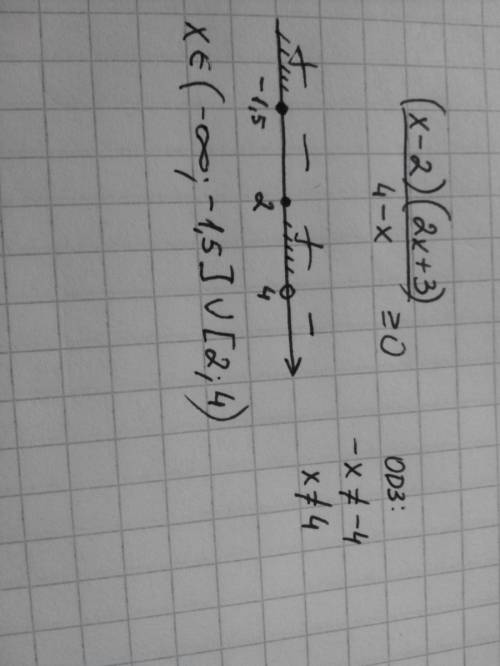 (x-2)(2x+3)
4-x ≥0
ОДЗ:
-x ≠ -4
x ≠ 4
+ - + -
-1,5 2 4
x ∈ (-∞; -1,5] ∪ [2; 4)